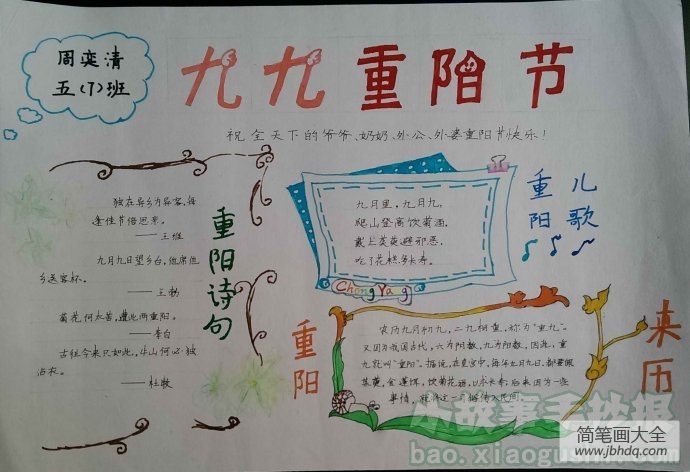 周奕清
五(7)班
九九重阳节
祝全天下的爷爷、奶奶、外公、外婆重阳节快乐！
重阳诗句
独在异乡为异客，每
逢佳节倍思亲。
——王维
九月九日望乡台，他席他
乡送客杯。
——王勃
菊花何太苦，遭此两重阳。
——李白
古往今来只如此，牛山何必独
沾衣。
——杜牧
重阳
儿歌
九月里，九月九，
爬山登高饮菊酒。
戴上茱萸避邪恶，
吃了花糕多长寿。
Chong Yang
重阳
来历
农历九月初九，二九相重，称为"重九"。
又因为我国古代，六为阴数，九为阳数，因此，重
九就叫"重阳"。据说，在皇宫中，每年九月九日，都要佩
茱萸，食蓬饵，饮菊花酒，以求长寿；后来因为一些
事情，
小故事手抄报
bao.xiaogushi.com
简笔画大全
www.jbhdq.com